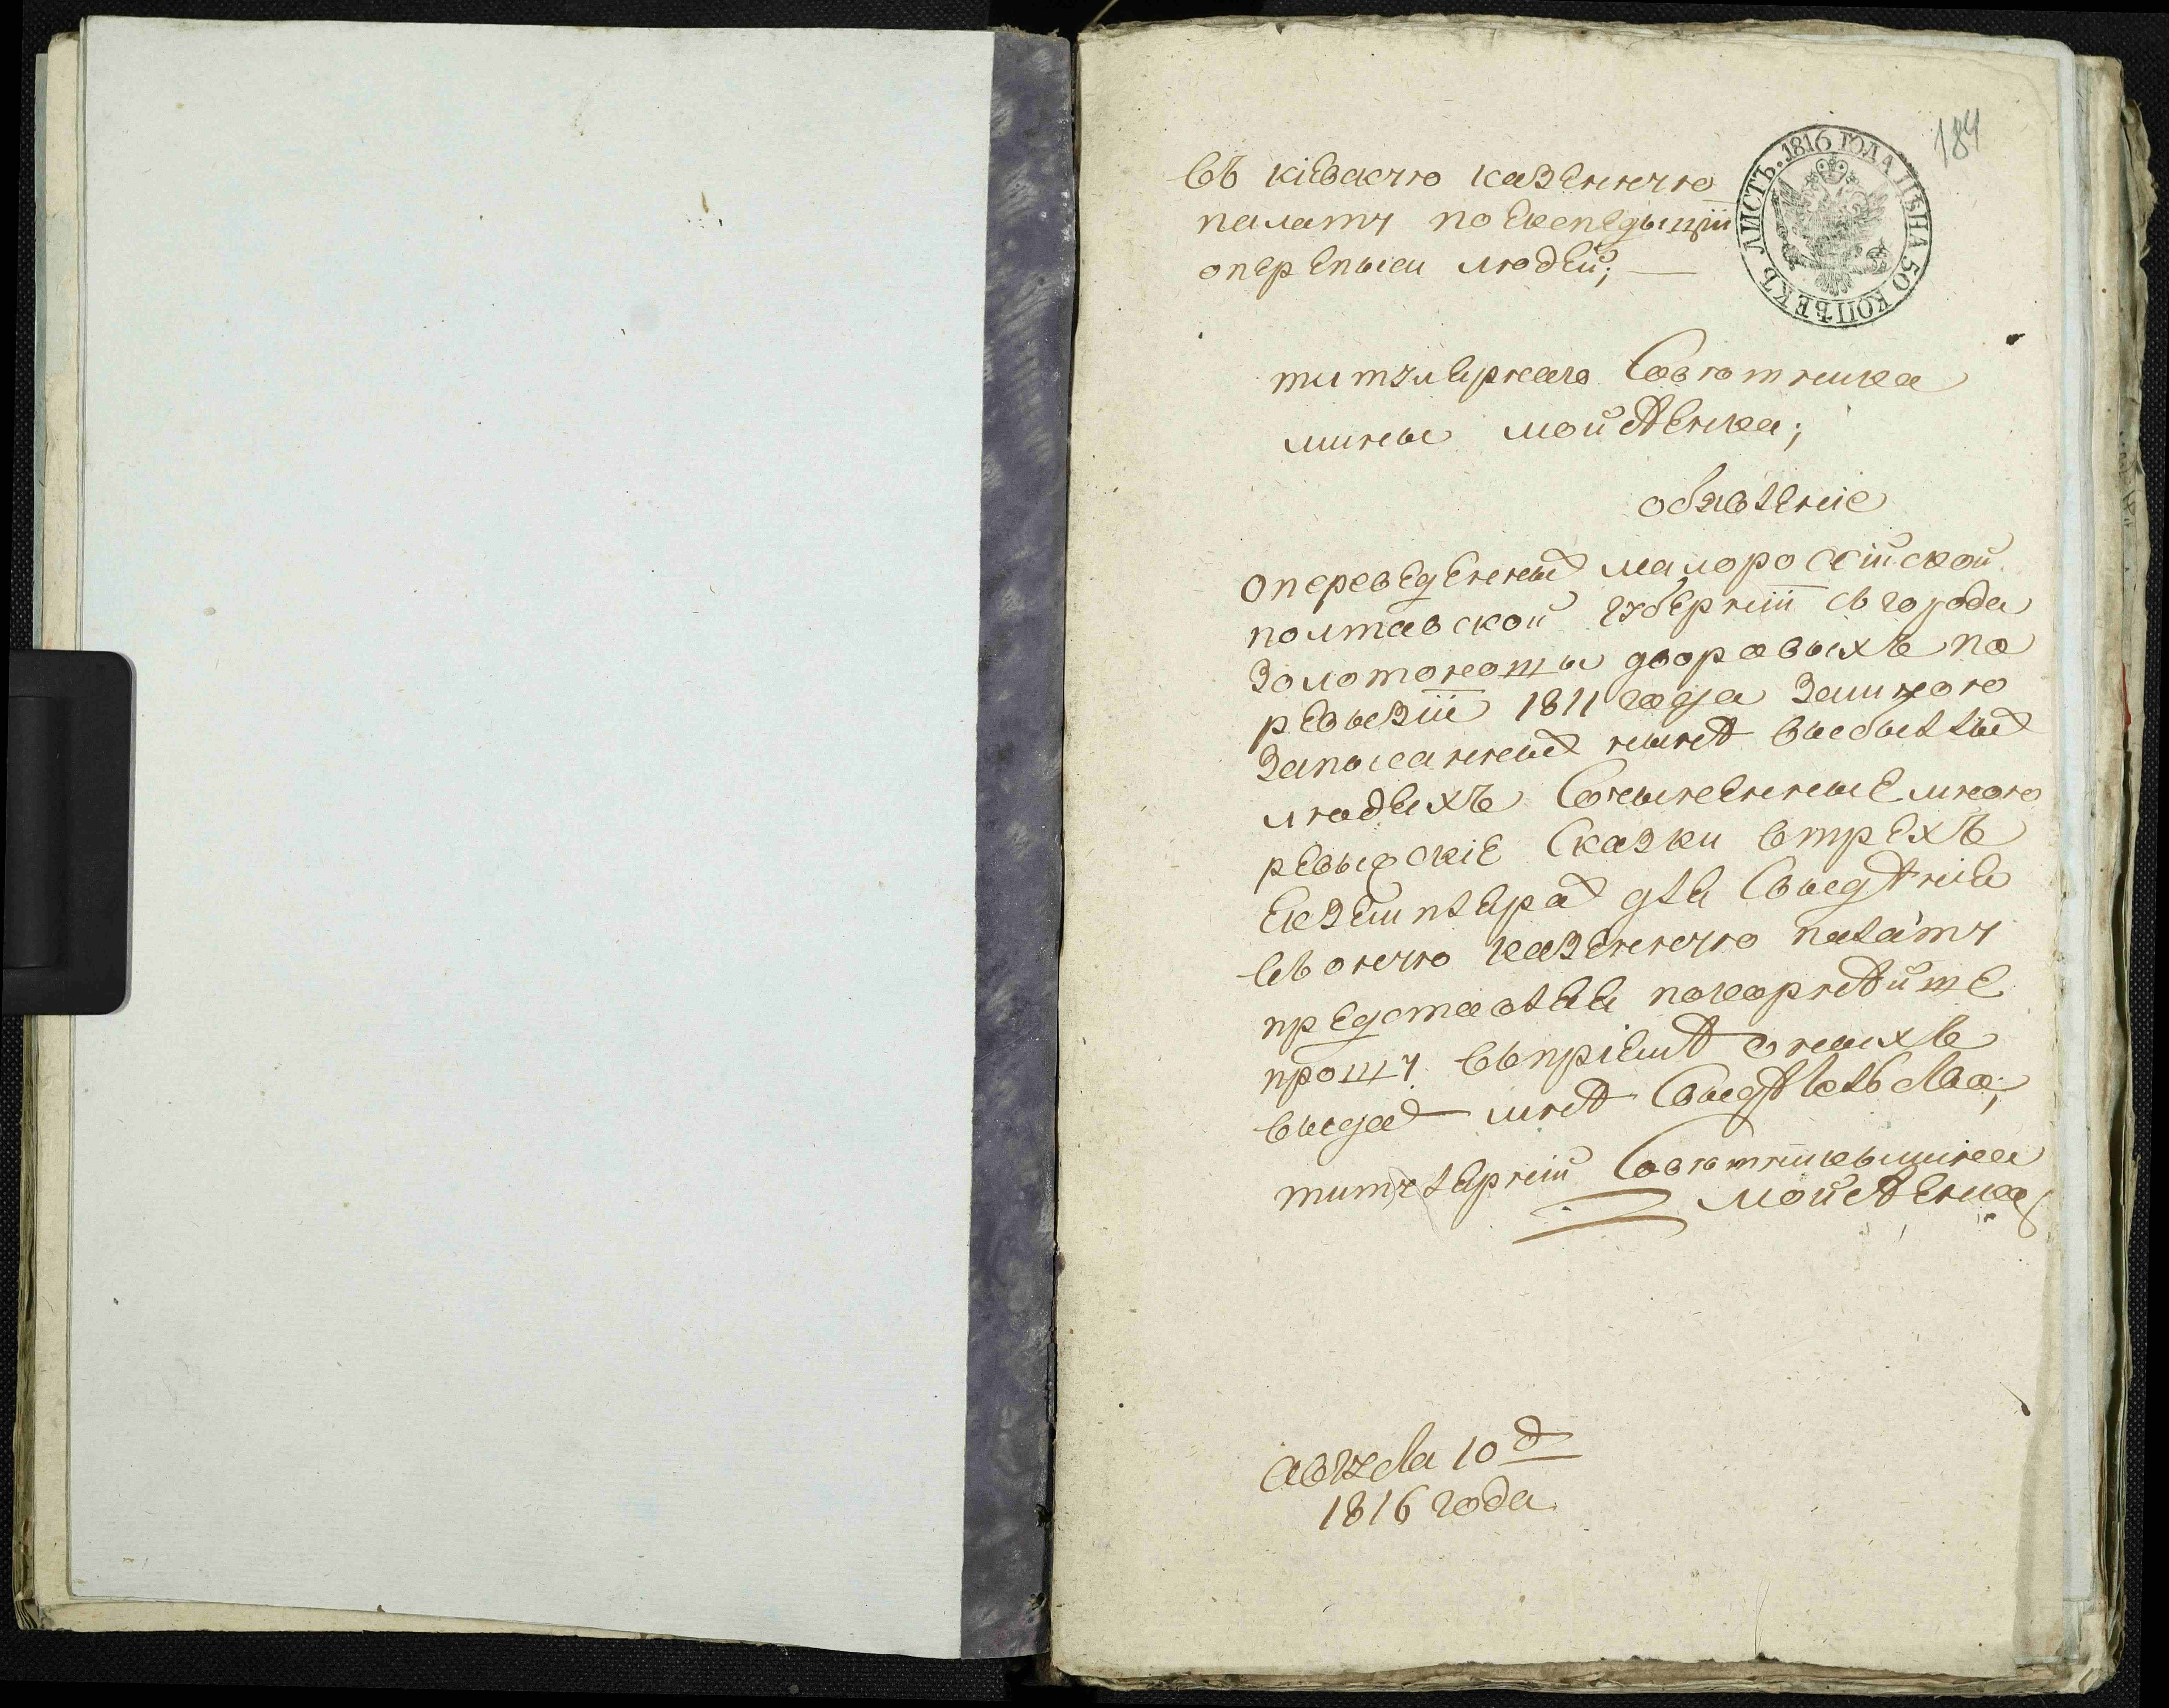 184
ЛИСТЪ. 1816 ГОДА ЦѢНА 50 КОПѢЕКЪ
въ кіевскую казенную
палату по експедыціи
опереписи людей;
титулярнаго Совѣтника
мины мойсѣенка;
обявленіе
опереведенных малоросійской
полтавской губерніи съ города
Золотоноши дворовыхъ по
ревызіи 1811 года Замною
Записанных нынѣ выбылых
людяхъ Сочыненные мною
ревыские Сказки втрехъ
екземплярах для Свыдѣния
въоную казенную палату
представляя покорнѣйше
прошу въпріемѣ оныхъ
выдат мнѣ Свыдѣтелства;
титулярній Совѣтникъ мина
мойсѣенка
Августа 10 д
1816 года